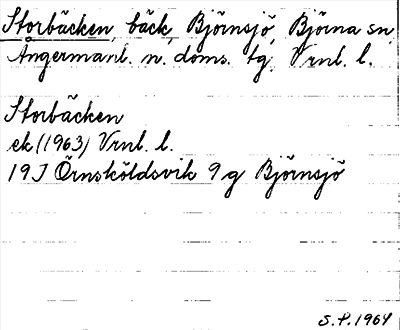 Storbäcken, bäck, Björnsjö, Björna sn,
Ångermanl. n. doms. tg, Vrnl. l.
Storbäcken
ek (1963) Vrnl. l.
19J Örnsköldsvik 9 g Björnsjö
S.P. 1964